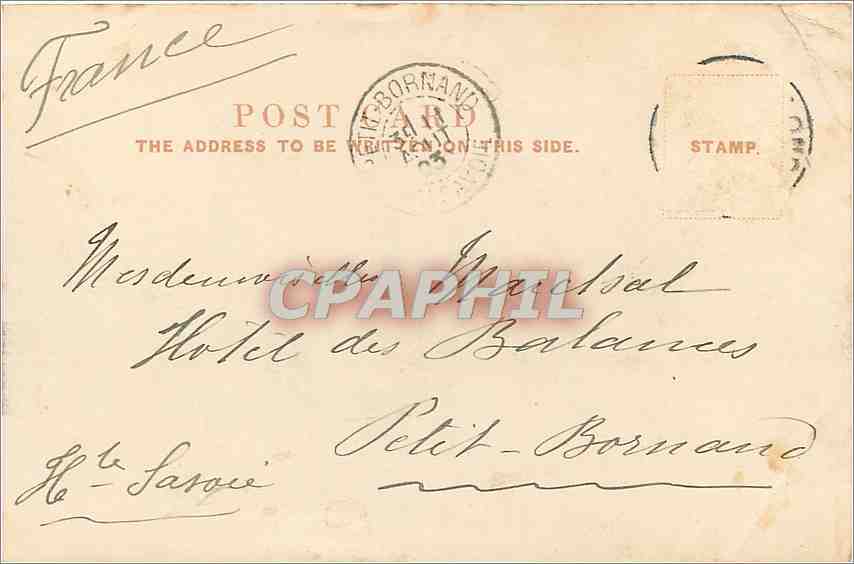 France
PETIT-BORNAND
POST CARD
THE ADDRESS TO BE WRITTEN ON THIS SIDE.
STAMP.
AOUT
03
SAVOIE
Mesdemoiselles
CPAPHIL
Hotel des Balances
Petit-Bornand
Hte Savoie